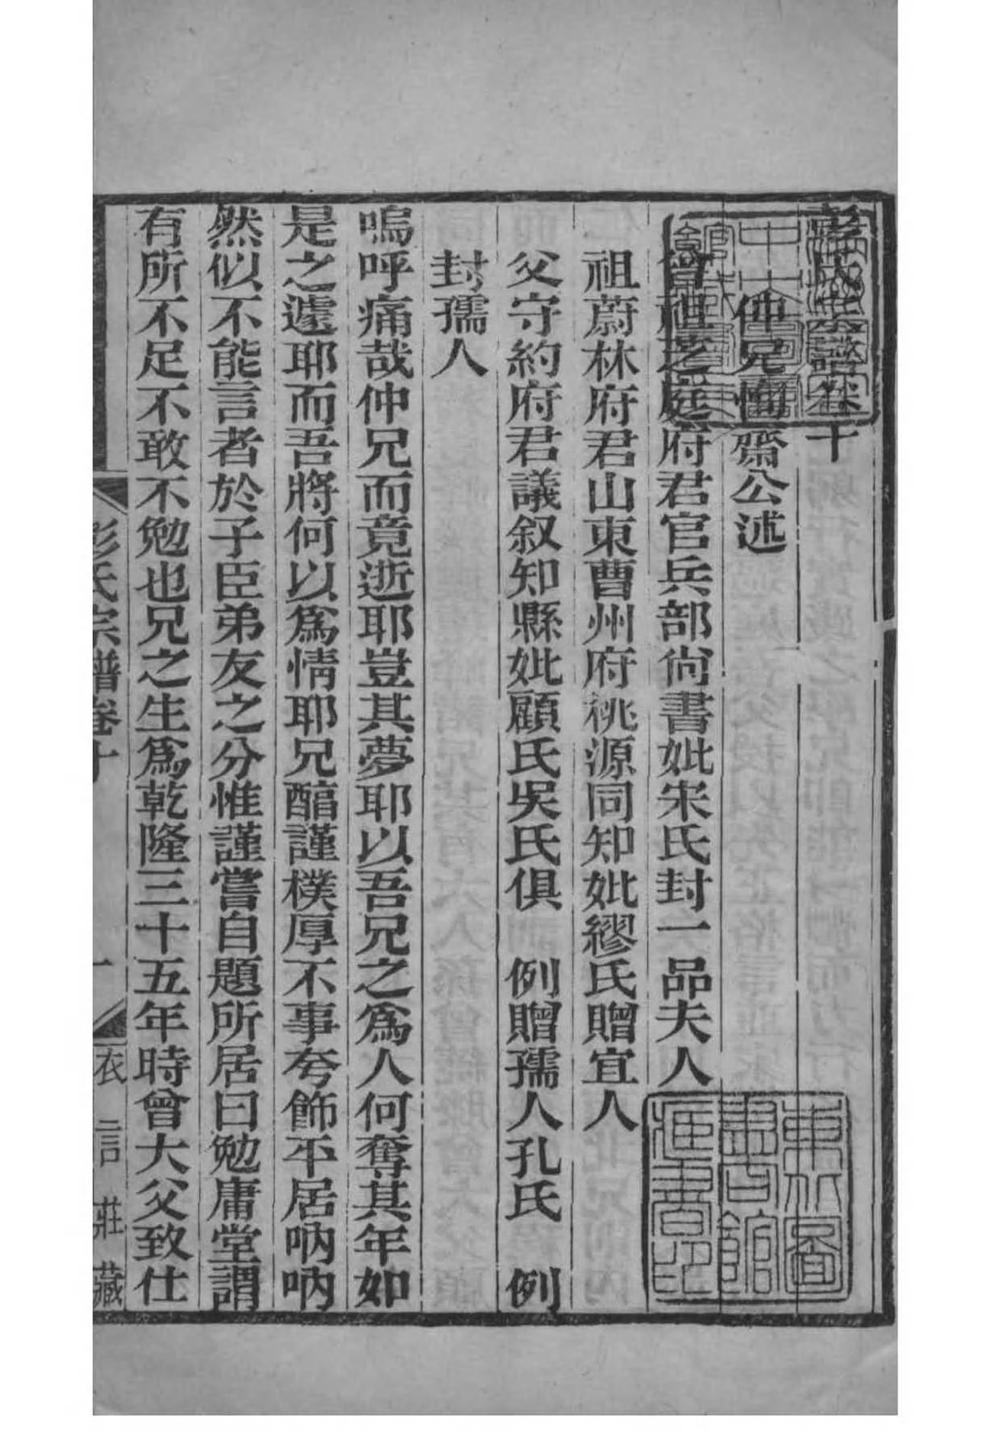 彭氏宗譜卷十
仲兄悔齋公述
曾祖芝庭府君官兵部尙書妣宋氏封一品夫人
祖蔚林府君山東曹州府桃源同知妣繆氏贈宜人
父守約府君議叙知縣妣顧氏吳氏俱 例贈孺人孔氏 例
封孺人
嗚呼痛哉仲兄而竟逝耶豈其夢耶以吾兄之爲人何奪其年如
是之遽耶而吾將何以爲情耶兄醕謹樸厚不事夸飾平居吶吶
然似不能言者於子臣弟友之分惟謹嘗自題所居曰勉庸堂謂
有所不足不敢不勉也兄之生爲乾隆三十五年時曾大父致仕
彭氏宗譜卷十 一 衣言莊藏